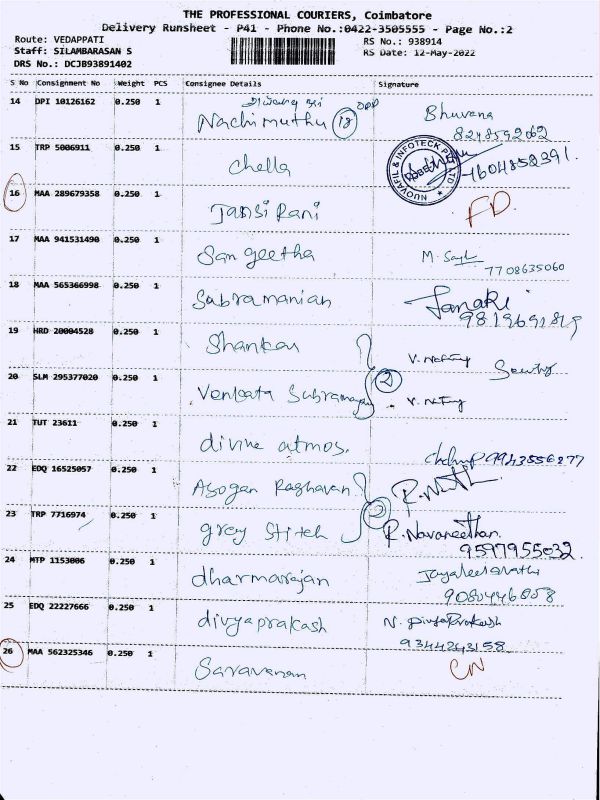 THE PROFESSIONAL COURIERS, Coimbatore
Delivery Runsheet - P41 - Phone No.:0422-3505555 - Page No.:2
Route: VEDAPPATI
Staff: SILAMBARASAN S
DRS No.: DCJB93891402
RS No.: 938914
RS Date: 12-May-2022
S No Consignment No Weight PCS Consignee Details Signature
14 DPI 10126162 0.250 1 Nachimuthu 18 Bhuvana
8248592062
15 TRP 5006911 0.250 1 Chella
NUOVAFIL & INFOTECK PVT LTD
16 MAA 289679358 0.250 1 Jansi Rani FD
17 MAA 941531490 0.250 1 Sangeetha M.
7708635060
18 MAA 565366998 0.250 1 Subramanian Janaki
19 HRD 20004528 0.250 1 Shankar
2
20 SLM 295377020 0.250 1 Venkata Subramanian
21 TUT 23611 0.250 1 divine atmos. 9943556277
22 EDQ 16525057 0.250 1 Asogan Raghavan
23 TRP 7716974 0.250 1 grey stitch R. Navaneethan
9597955032
24 MTP 1153006 0.250 1 dharmarajan
25 EDQ 22227666 0.250 1 divyaprakash N. Divya Prakash
9344243158
26 MAA 562325346 0.250 1 Saravanan CN